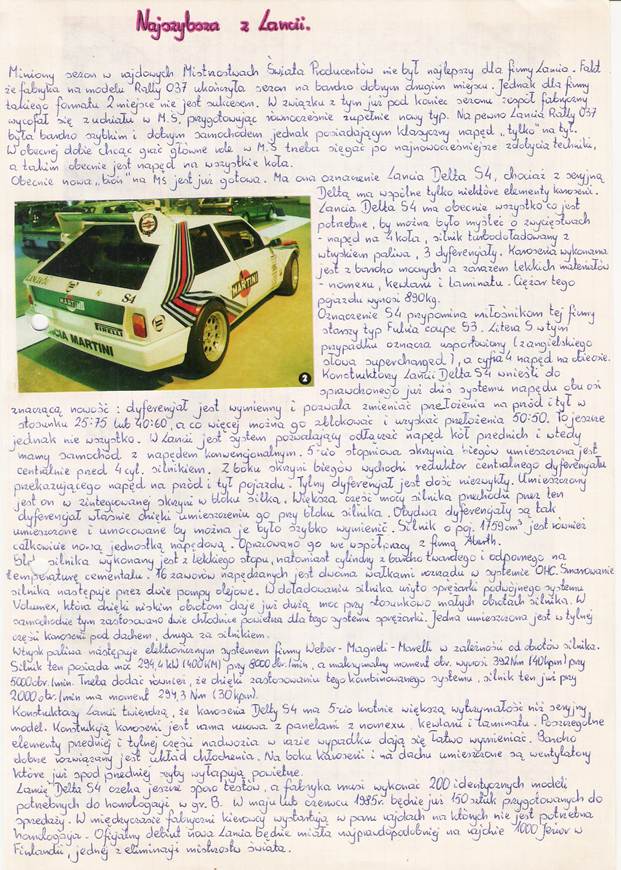 Najszybsza z Lancii.
Miniony sezon w rajdowych Mistrzostwach Świata Producentów nie był najlepszy dla firmy Lancia. Fakt
że fabryka na modelu Rally 037 ukończyła sezon na bardzo dobrym drugim miejscu. Jednak dla firmy
takiego formatu 2 miejsce nie jest sukcesem. W związku z tym już pod koniec sezonu zespół fabryczny
wycofał się z udziału w M.S. przygotowując równocześnie zupełnie nowy typ. Na pewno Lancia Rally 037
była bardzo szybkim i dobrym samochodem jednak posiadającym klasyczny napęd „tylko" na tył.
W obecnej dobie chcąc grać główne role w M.S trzeba sięgać po najnowocześniejsze zdobycia techniki,
a takim obecnie jest napęd na wszystkie koła.
Obecnie nowa „broń" na MS jest już gotowa. Ma ona oznaczenie Lancia Delta S4, chociaż z seryjną
Deltą ma wspólne tylko niektóre elementy karoserii.
Lancia Delta S4 ma obecnie wszystko co jest
potrzebne, by można było myśleć o zwycięstwach
- napęd na 4 koła, silnik turbodoładowany z
wtryskiem paliwa, 3 dyferencjały. Karoseria wykonana
jest z bardzo mocnych a zarazem lekkich materiałów
- nomexu, kewlaru i laminatu. Ciężar tego
pojazdu wynosi 890kg.
Oznaczenie S4 przypomina miłośnikom tej firmy
starszy typ Fulvia coupe S3. Litera S w tym
przypadku oznacza usportowiony (z angielskiego
słowa supercharged), a cyfra 4 napęd na obie osie.
Konstruktorzy Lancii Delta S4 wnieśli do
sprawdzonego już dziś systemu napędu obu osi
znaczącą nowość: dyferencjał jest wymienny i pozwala zmieniać przełożenia na przód i tył w
stosunku 25:75 lub 40:60, a co więcej można go zblokować i uzyskać przełożenia 50:50. To jeszcze
jednak nie wszystko. W Lancii jest system pozwalający odłączać napęd kół przednich i wtedy
mamy samochód z napędem konwencjonalnym. 5-cio stopniowa skrzynia biegów umieszczona jest
centralnie przed 4 cyl. silnikiem. Z boku skrzyni biegów wychodzi reduktor centralnego dyferencjału
przekazującego napęd na przód i tył pojazdu. Tylny dyferencjał jest dość niezwykły. Umieszczony
jest on w zintegrowanej skrzyni w bloku silka. Większa część mocy silnika przechodzi przez ten
dyferencjał właśnie dzięki umieszczeniu go przy bloku silnika. Obydwa dyferencjały są tak
umieszczone i umocowane by można je było szybko wymienić. Silnik o poj. 1759cm³ jest również
całkowicie nową jednostką napędową. Opracowano go we współpracy z firmą Abarth.
Blok silnika wykonany jest z lekkiego stopu, natomiast cylindry z bardzo twardego i odpornego na
temperaturę cementalu. 16 zaworów napędzanych jest dwoma wałkami rozrządu w systemie OHC. Smarowanie
silnika następuje przez dwie pompy olejowe. W doładowaniu silnika użyto sprężarki podwójnego systemu
Volumex, która dzięki niskim obrotom daje już dużą moc przy stosunkowo małych obrotach silnika. W
samochodzie tym zastosowano dwie chłodnice powietrza dla tego systemu sprężarki. Jedna umieszczona jest w tylnej
części karoserii pod dachem, druga za silnikiem.
Wtrysk paliwa następuje elektronicznym systemem firmy Weber - Magneti - Marelli w zależności od obrotów silnika.
Silnik ten posiada moc 294,4 kW (400KM) przy 8000 obr./min, a maksymalny moment obr. wynosi 392Nm (40kpm) przy
5000 obr./min. Trzeba dodać również, że dzięki zastosowaniu tego kombinowanego systemu, silnik ten już przy
2000 obr./min ma moment 294,3 Nm (30kpm).
Konstruktorzy Lancii twierdzą, że karoseria Delty S4 ma 5-cio krotnie większą wytrzymałość niż seryjny
model. Konstrukcją karoserii jest rama rurowa z panelami z nomexu, kewlaru i laminatu. Poszczególne
elementy przedniej i tylnej części nadwozia w razie wypadku dają się łatwo wymieniać. Bardzo
dobrze rozwiązany jest układ chłodzenia. Na boku karoserii i na dachu umieszczone są wentylatory
które już spod przedniej szyby wyłapują powietrze.
Lancię Delta S4 czeka jeszcze sporo testów, a fabryka musi wykonać 200 identycznych modeli
potrzebnych do homologacji w gr. B. W maju lub czerwcu 1985r. będzie już 150 sztuk przygotowanych do
sprzedaży. W międzyczasie fabryczni kierowcy wystartują w paru rajdach na których nie jest potrzebna
homologacja. Oficjalny debiut nowa Lancia będzie miała najprawdopodobniej na rajdzie 1000 Jezior w
Finlandii, jednej z eliminacji mistrzostw świata.
MARTINI
S4
PIRELLI
CIA MARTINI
2